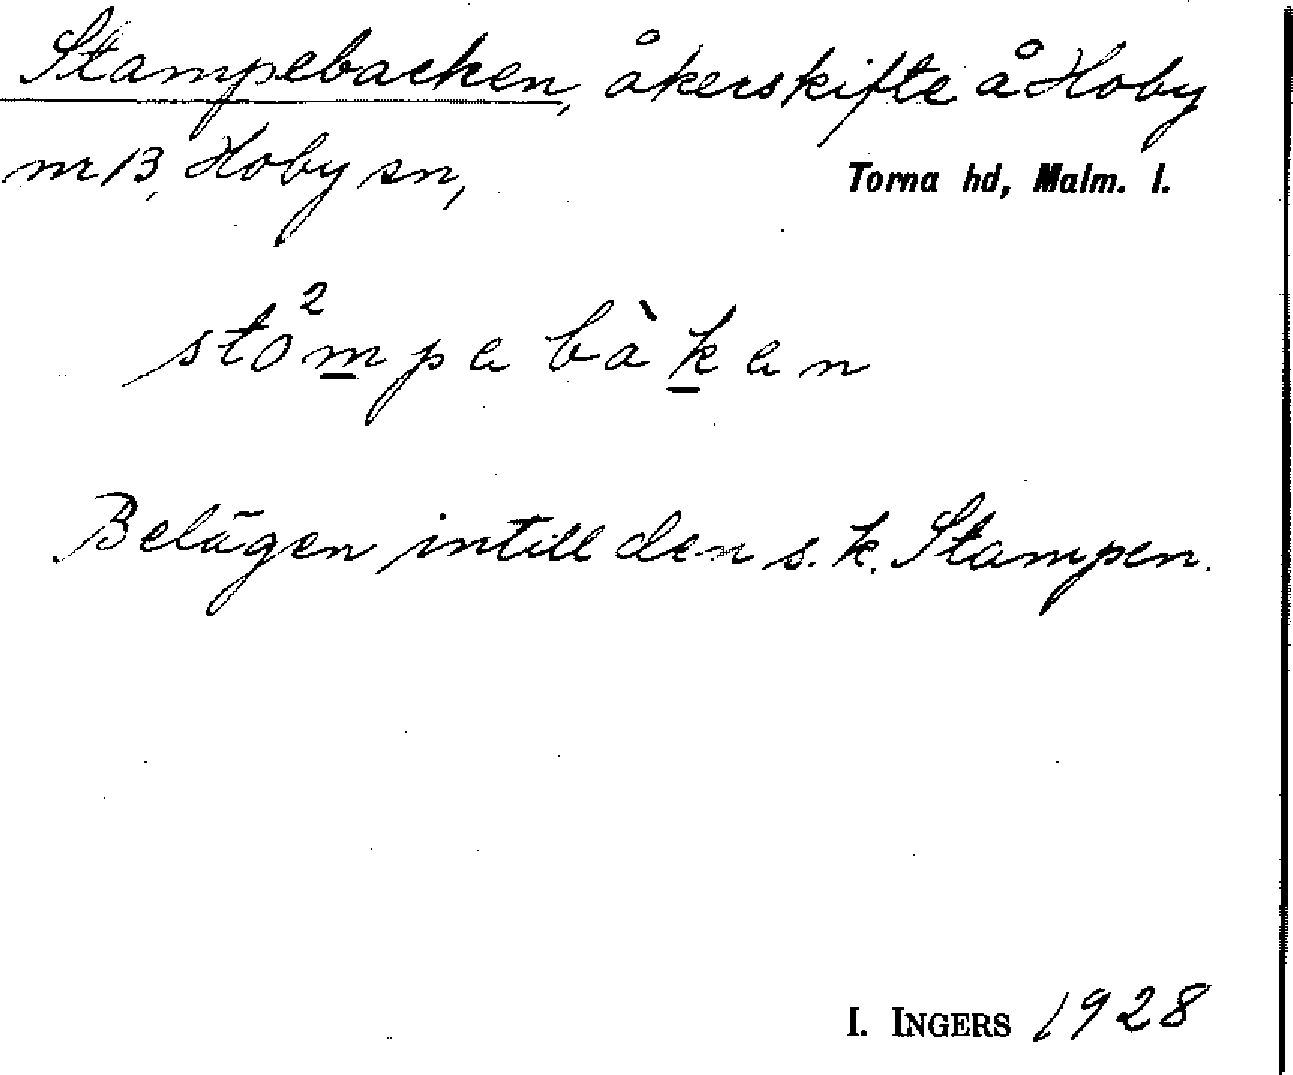 Stampebacken, åkerskifte å Hoby
nr 13, Hoby sn,
Torna hd, Malm. l.
sto²m̲pebàk̲en
Belägen intill den s.k. Stampen.
I. INGERS 1928